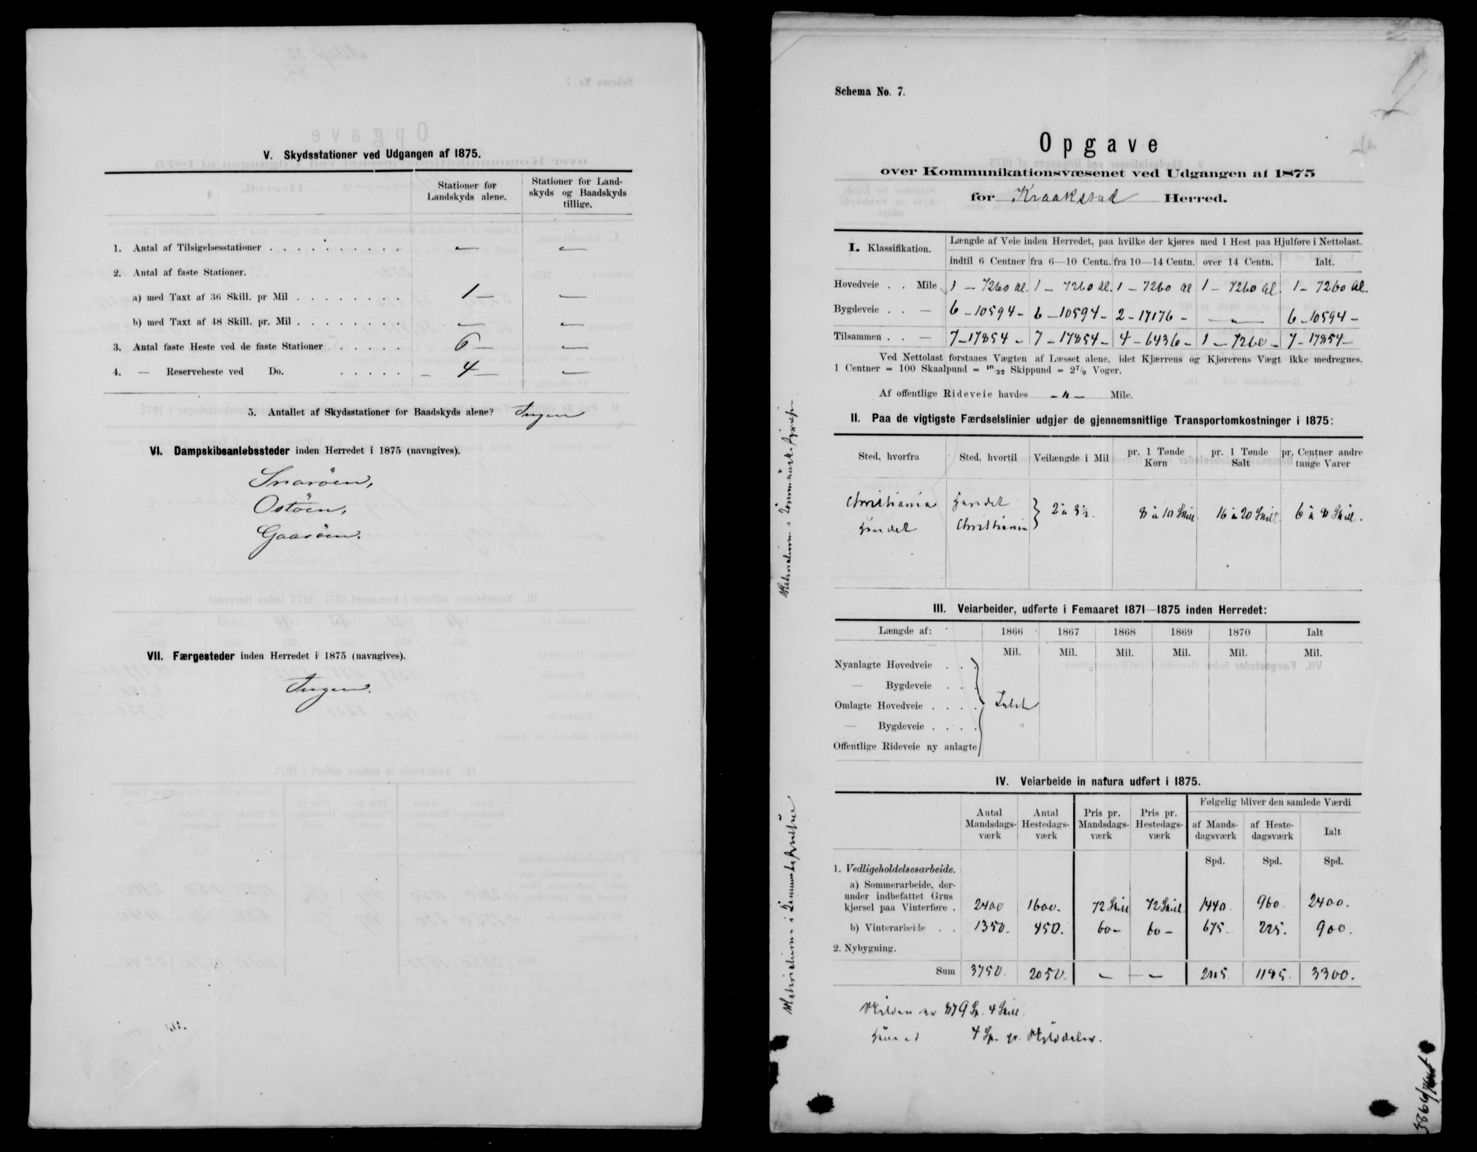 V. Skydsstationer ved Udgangen af 1875.
Stationer for Landskyds alene.
Stationer for Land-
skyds og Baadskyds
tillige.
1. Antal af Tilsigelsesstationer . . . . . . . . . — —
2. Antal af faste Stationer.
a) med Taxt af 36 Skill. pr Mil . . . . . . . 1 — —
b) med Taxt af 48 Skill. pr. Mil . . . . . . . — —
3. Antal faste Heste ved de faste Stationer . . . . . 6 — —
4. — Reserveheste ved Do. . . . . . . — 4 — —
5. Antallet af Skydsstationer for Baadskyds alene? Ingen
VI. Dampskibsanløbssteder inden Herredet i 1875 (navngives).
Snarøen,
Ostøen,
Gaasøen.
VII. Færgesteder inden Herredet i 1875 (navngives).
Ingen.
Schema No. 7.
Opgave
over Kommunikationsvæsenet ved Udgangen af 1875
for Kraakstad Herred.
I. Klassifikation.
Længde af Veie inden Herredet, paa hvilke der kjøres med 1 Hest paa Hjulføre i Nettolast.
indtil 6 Centner fra 6—10 Centn. fra 10—14 Centn. over 14 Centn. Ialt.
Hovedveie . . Mile 1 — 7260 al. 1 — 7260 al. 1 — 7260 al 1 — 7260 al. 1 — 7260 al.
Bygdeveie . . — 6 — 10594 — 6 — 10594 — 2 — 17176 — — 6 — 10594 —
Tilsammen . . — 7 — 17854 — 7 — 17854 — 4 — 6436 — 1 — 7260 — 7 — 17854 —
Ved Nettolast forstaaes Vægten af Læsset alene, idet Kjærrens og Kjørerens Vægt ikke medregnes.
1 Centner = 100 Skaalpund = 10/32 Skippund = 2 7/9 Voger.
Af offentlige Rideveie havdes — " — Mile.
II. Paa de vigtigste Færdselslinier udgjør de gjennemsnitlige Transportomkostninger i 1875:
Sted, hvorfra Sted, hvortil Veilængde i Mil pr. 1 Tønde Korn pr. 1 Tønde Salt pr. Centner andre tunge Varer
Christiania Herredet 2 à 3½. 8 à 10 Skill. 16 à 20 Skill. 6 à 8 Skill.
Herredet Christiania
III. Veiarbeider, udførte i Femaaret 1871—1875 inden Herredet:
Længde af: 1866 1867 1868 1869 1870 Ialt
Mil. Mil. Mil. Mil. Mil. Mil.
Nyanlagte Hovedveie . . .
— Bygdeveie . . .
Omlagte Hovedveie . . . . Intet
— Bygdeveie . . . .
Offentlige Rideveie ny anlagte
IV. Veiarbeide in natura udført i 1875.
Antal Mandsdags-værk Antal Hestedags-værk Pris pr. Mandsdags-værk Pris pr. Hestedags-værk Følgelig bliver den samlede Værdi
af Mands-dagsværk af Heste-dagsværk Ialt
Spd. Spd. Spd.
1. Vedligeholdelsesarbeide.
a) Sommerarbeide, der-
under indbefattet Grus
kjørsel paa Vinterføre . 2400 1600. 72 Skill 72 Skill. 1440. 960. 2400.
b) Vinterarbeide . . 1350. 450. 60 — 60 — 675. 225. 900.
2. Nybygning.
Sum 3750. 2050. — — 2115 1185. 3300.